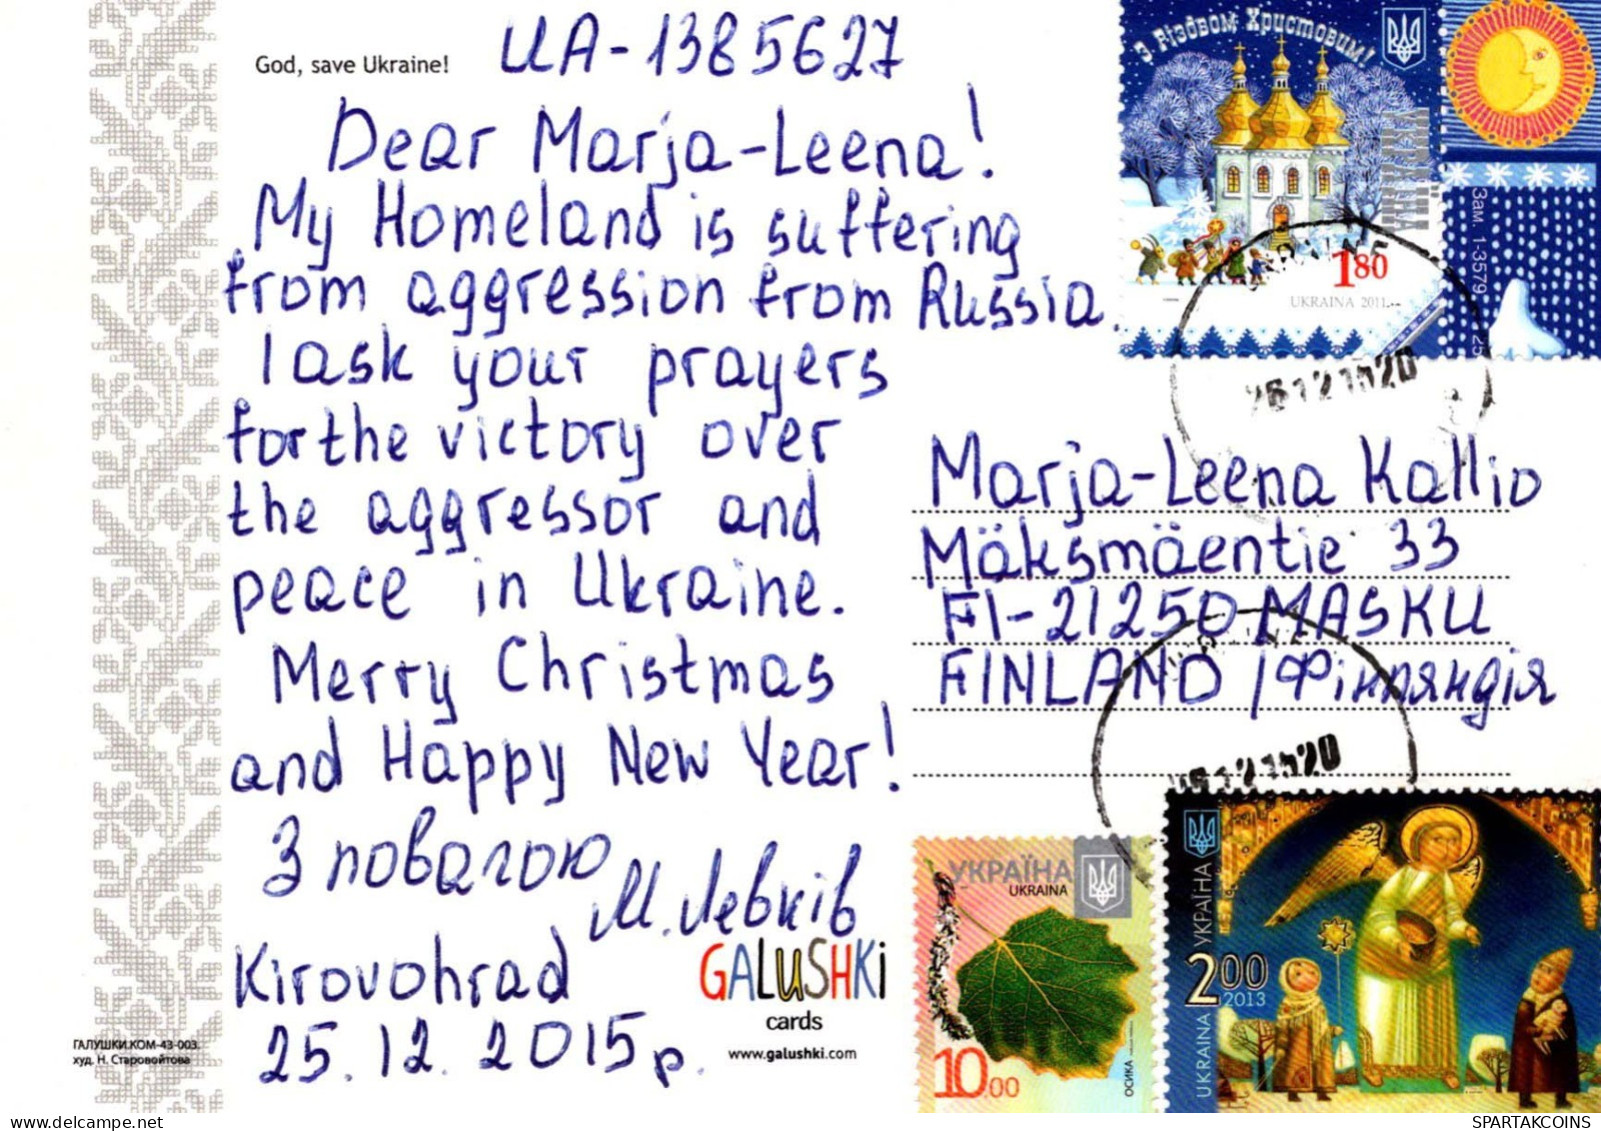 God, save Ukraine!
UA-1385627
Dear Marja-Leena!
My Homeland is suffering
from aggression from Russia.
I ask your prayers
for the victory over
the aggressor and
peace in Ukraine.
Merry Christmas
and Happy New Year!
З повагою
М. Левків
Kirovohrad
25.12.2015 р.
ГАЛУШКИ.КОМ-43-003.
худ. Н. Старовойтова
GALUSHKi
cards
www.galushki.com
З Різдвом Христовим!
1.80
UKRAINA 2011
Зам. 1-3579
Marja-Leena Kallio
Mäksmäentie 33
FI-21250 MASKU
FINLAND / Фінляндія
УКРАЇНА
UKRAINA
10.00
ОСИКА
UKRAINA УКРАЇНА
2.00
2013
SPARTAKCOINS